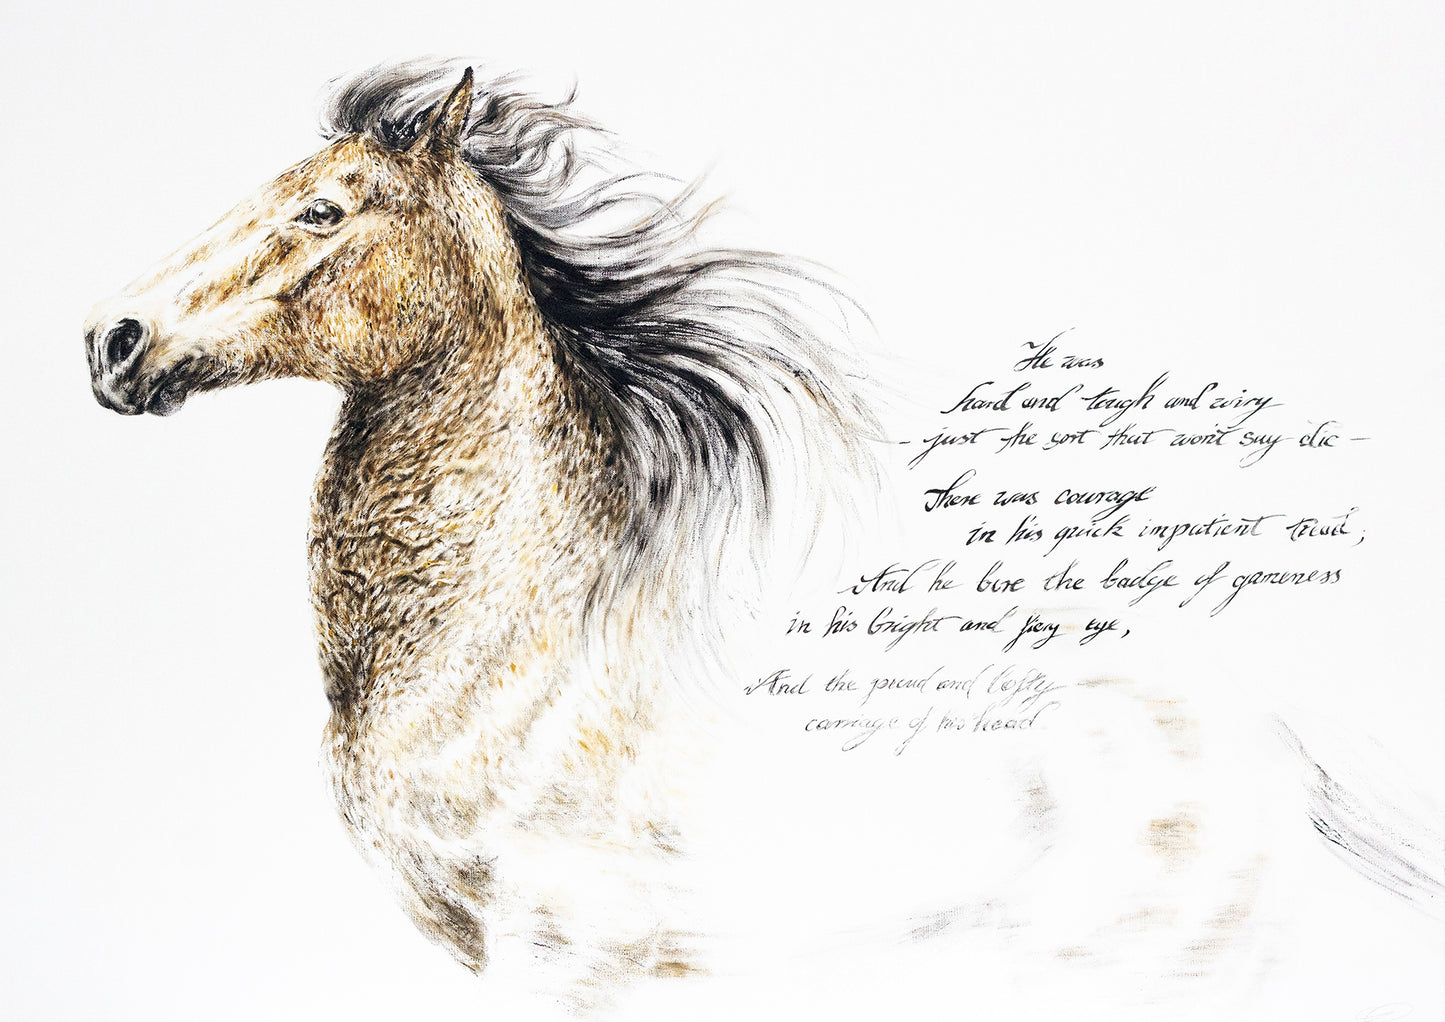 He was
hard and tough and wiry
- just the sort that won't say die -
There was courage
in his quick impatient tread;
And he bore the badge of gameness
in his bright and fiery eye,
And the proud and lofty
carriage of his head.